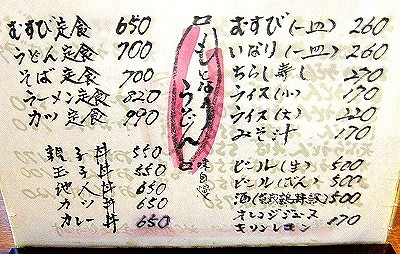 むすび定食 650
うどん定食 700
そば定食 700
ラーメン定食 820
カツ定食 990
親子丼 550
玉子丼 550
他人丼 650
カツ丼 650
カレー丼 650
うどん
むすび(一皿) 260
いなり(一皿) 260
ちらし寿し 270
ライス(小) 170
ライス(大) 220
みそ汁 170
ビール(生) 500
ビール(びん) 500
酒 500
オレンジジュース 170
キリンレモン